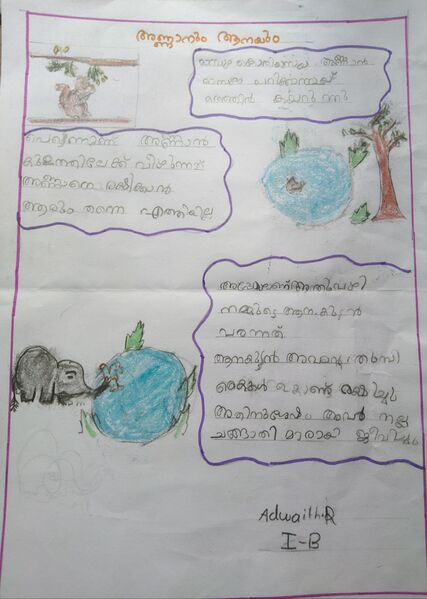 അണ്ണാനും ആനയും
മാമ്പഴ കൊതിയനായ അണ്ണാൻ
മാമ്പഴം പറിക്കാനായി
മരത്തിൽ കയറുന്നു
പെട്ടെന്നാണ് അണ്ണാൻ
കുളത്തിലേക്ക് വീഴുന്നത്
അണ്ണാനെ രക്ഷിക്കാൻ
ആരും തന്നെ എത്തിയില്ല
അപ്പോഴാണ് അതുവഴി
നമ്മുടെ ആനകുട്ടൻ
വരുന്നത്
ആനകുട്ടൻ അവന്റെ തുമ്പി
കൈകൾ കൊണ്ട് രക്ഷിച്ചു
അതിനുശേഷം അവർ നല്ല
ചങ്ങാതി മാരായി ജീവിച്ചു
Adwaith.R
I-B